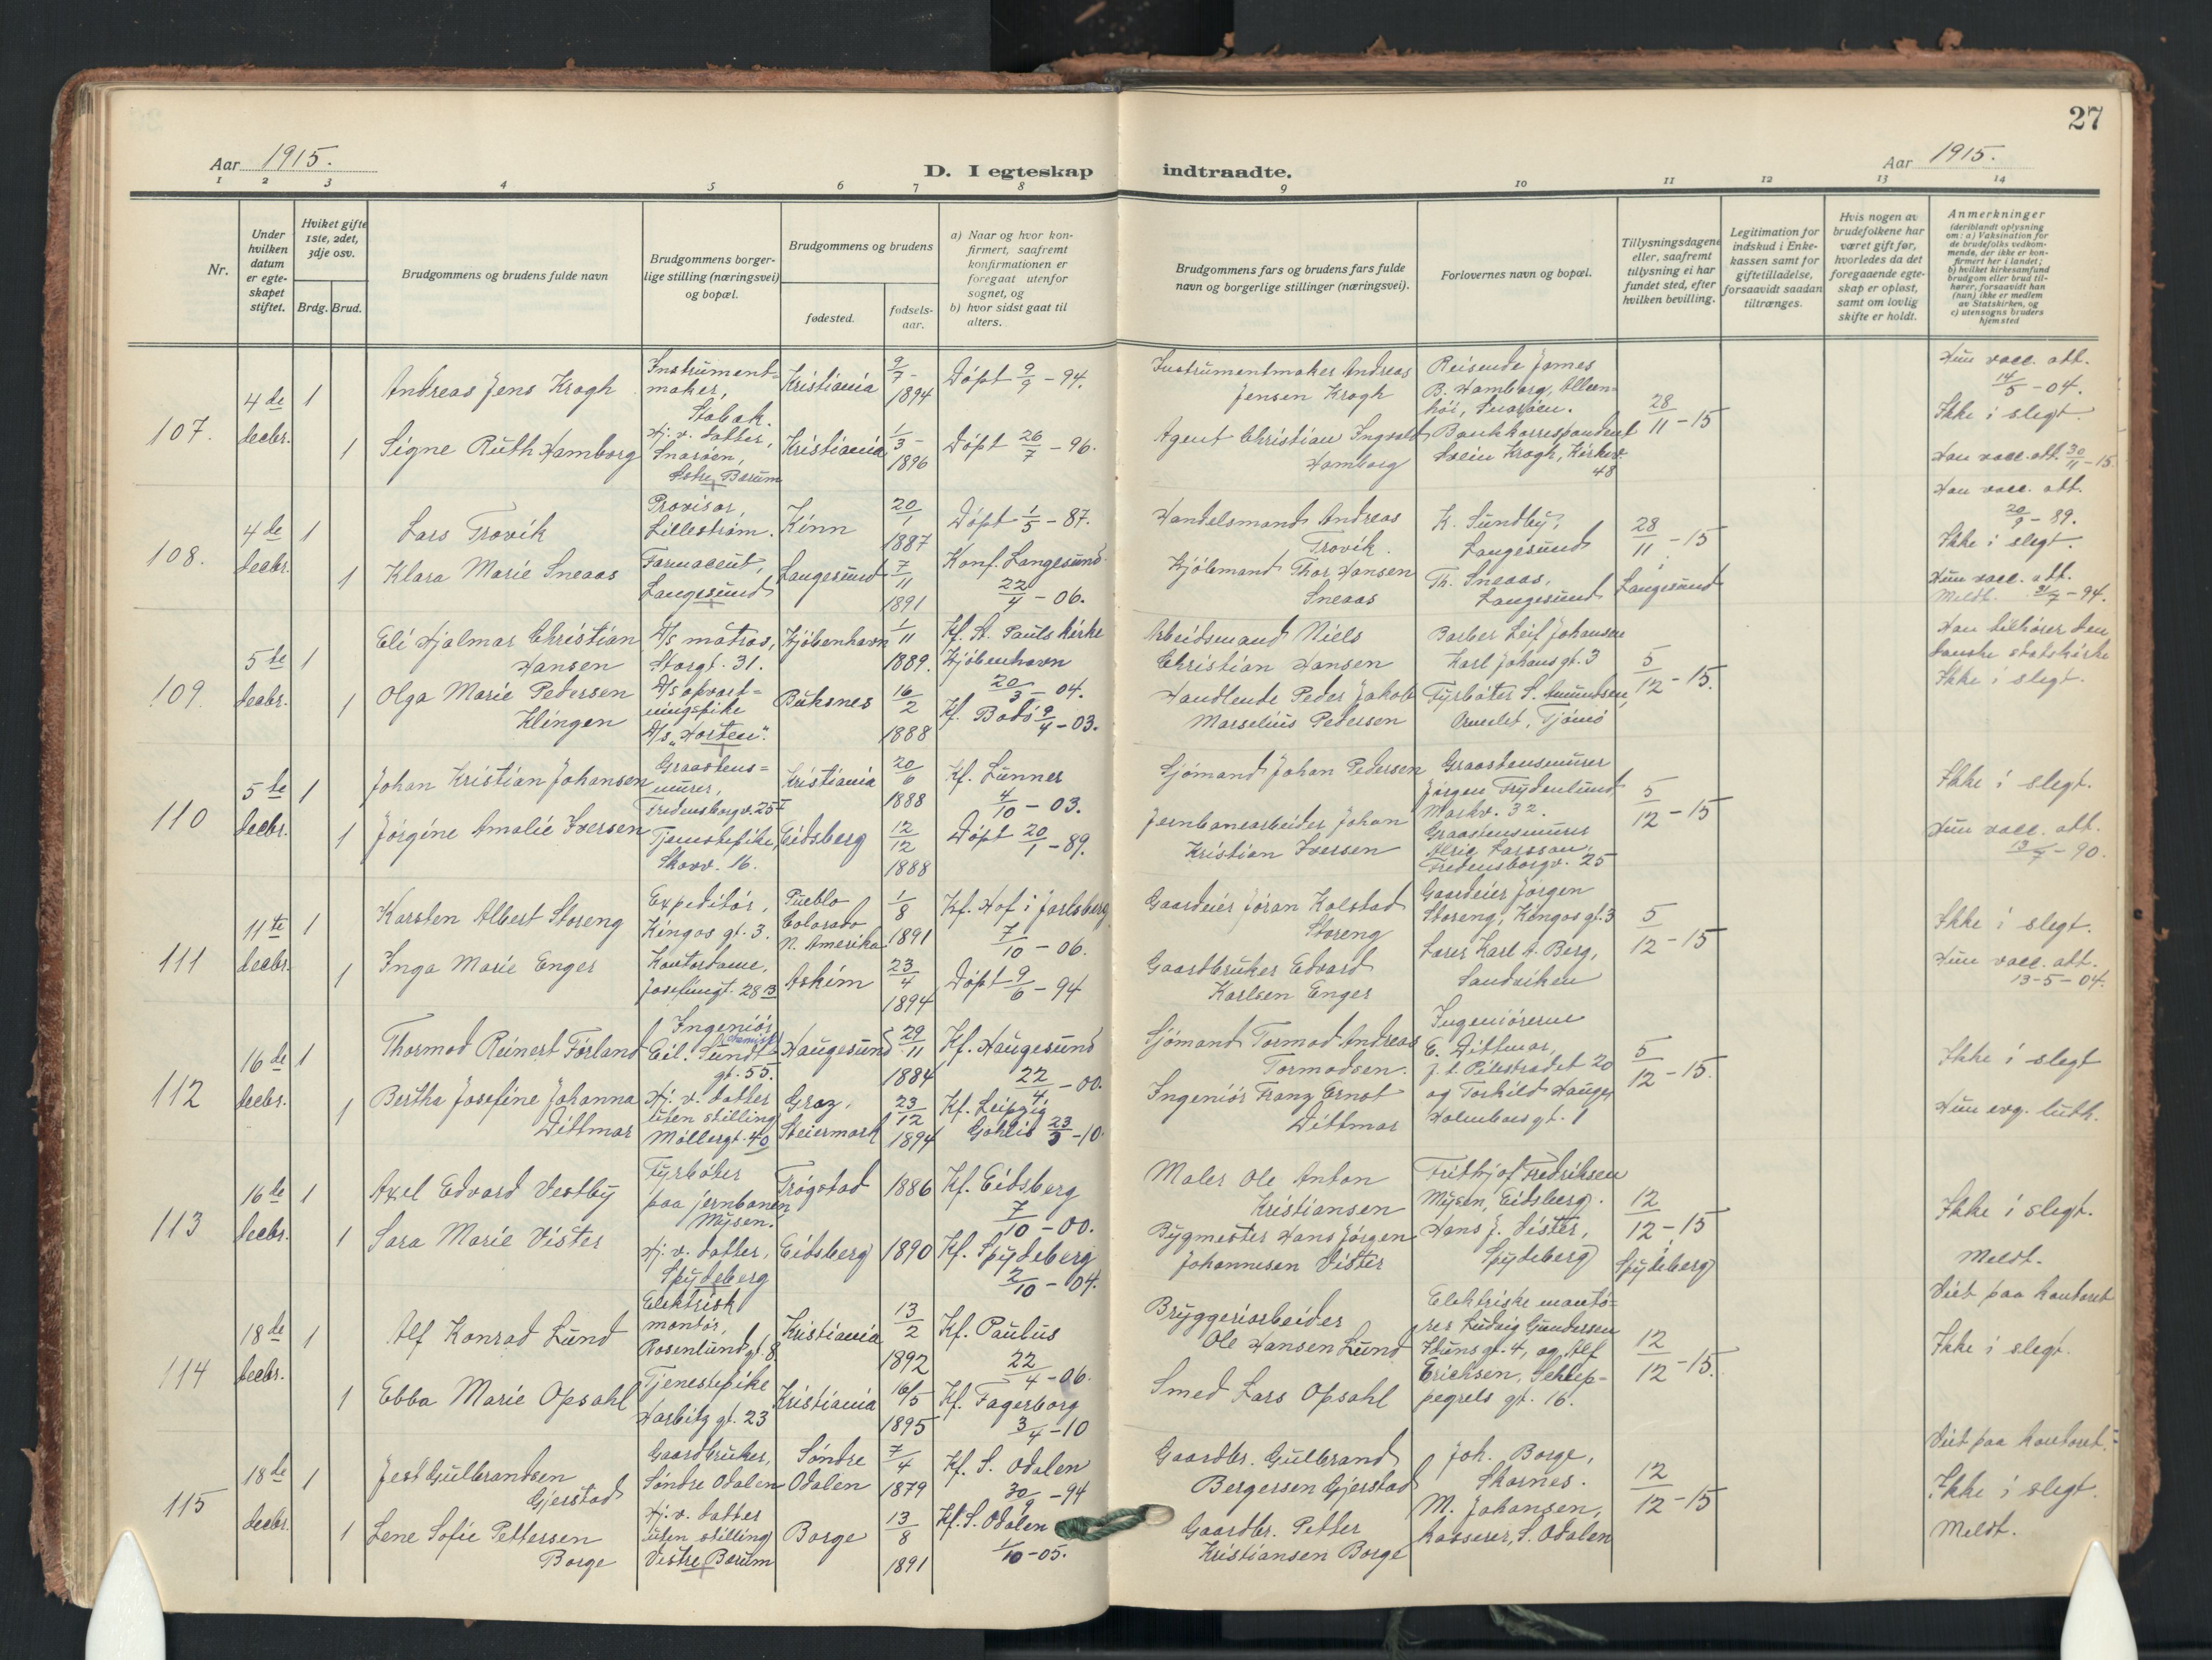 27
Aar 1915.
D. I egteskap indtraadte.
Aar 1915.
1 2 3 4 5 6 7 8 9 10 11 12 13 14
Nr.
Under hvilken datum er egteskapet stiftet.
Hviket gifte 1ste, 2det, 3dje osv.
Brdg. Brud.
Brudgommens og brudens fulde navn
Brudgommens borgerlige stilling (næringsvei) og bopæl.
Brudgommens og brudens
fødested.
fødselsaar.
a) Naar og hvor konfirmert, saafremt konfirmationen er foregaat utenfor sognet, og
b) hvor sidst gaat til alters.
Brudgommens fars og brudens fars fulde navn og borgerlige stillinger (næringsvei).
Forlovernes navn og bopæl.
Tillysningsdagene eller, saafremt tillysning ei har fundet sted, efter hvilken bevilling.
Legitimation for indskud i Enkekassen samt for giftetilladelse, forsaavidt saadan tiltrænges.
Hvis nogen av brudefolkene har været gift før, hvorledes da det foregaaende egteskap er opløst, samt om lovlig skifte er holdt.
Anmerkninger
(deriblandt oplysning om: a) Vaksination for de brudefolks vedkommende, der ikke er konfirmert her i landet; b) hvilket kirkesamfund brudgom eller brud tilhører, forsaavidt han (hun) ikke er medlem av Statskirken, og c) utensogns bruders hjemsted
107. 4de decbr. 1
Andreas Jens Krogh
Instrumentmaker, Stabæk.
Kristiania
9/7 - 1894
Døpt 9/9 - 94.
Instrumentmaker Andreas Jensen Krogh
Reisende James B. Hamborg,
Snarøen.
28/11 - 15
Hun vacc. att. 14/5 - 04.
Ikke i slegt.
1 Signe Ruth Hamborg
Hj. v. datter, Snarøen, Østre Bærum
Kristiania
1/3 - 1896
Døpt 26/7 - 96.
Agent Christian Ingvald Hamborg
Bankkorrespondent Svein Krogh, Kirkev. 48
Han vacc. att. 30/11 - 15.
108. 4de decbr. 1
Lars Trovik
Provisor, Lillestrøm.
Kinn
20/1 1887
Døpt 1/5 - 87.
Handelsmand Andreas Trovik.
K. Sundby, Langesund
28/11 - 15
Langesund
Han vacc. att. 20/9 - 89.
Ikke i slegt.
1 Klara Marie Sneaas
Farmaceut, Langesund
Langesund
7/11 1891
Konf. Langesund 22/4 - 06.
Kjølemand Thor Hansen Sneaas
Th. Sneaas, Langesund
Hun vacc. att.
Meldt.
109. 5te decbr. 1
Eli Hjalmar Christian Hansen
D/s matros, Storgt. 31.
Kjøbenhavn
1/11 1889.
Kf. St. Pauls kirke Kjøbenhavn 20/3 - 04.
Arbeidsmand Niels Christian Hansen
Barber Leif Johansen Karl Johans gt. 3
5/12 - 15.
Han tilhører den danske statskirke
Ikke i slegt.
1 Olga Marie Pedersen Klingen
D/s opvartningspike D/s "Horten".
Buksnes
16/2 1888
Kf. Bodø 9/4 - 03.
Handlende Peder Jakob Marselius Pedersen
Fyrbøter S. Amundsen,
Tjømø
110 5te decbr. 1
Johan Kristian Johansen
Graastensmurer, Fredensborgv. 25
Kristiania
20/6 1888
Kf. Lunner 4/10 - 03.
Sjømand Johan Pedersen
Graastensmurer Jørgen Frydenlund Markv. 32.
5/12 - 15
Ikke i slegt.
1 Jørgine Amalie Iversen
Tjenestepike, Skovv. 16.
Eidsberg
12/12 1888
Døpt 20/1 - 89.
Jernbanearbeider Johan Kristian Iversen
Graastensmurer Alric Larsson, Fredensborgv. 25
Hun vacc. att. 13/7 - 90.
111 11te decbr. 1
Karsten Albert Storeng
Expeditør, Kingos gt. 3.
Pueblo Colorado N. Amerika
1/8 1891
Kf. Hof i Jarlsberg 7/10 - 06.
Gaardeier Jøran Kolstad Storeng
Gaardeier Jørgen Storeng, Kingos gt. 3
5/12 - 15
Ikke i slegt.
1 Inga Marie Enger
Kontordame, Josefinegt. 28
Askim
23/4 1894
Døpt 9/6 - 94
Gaardbruker Edvard Karlsen Enger
Lærer Karl A. Berg, Sandviken
Hun vacc. att. 13-5-04.
112 16de decbr. 1
Thormod Reinert Førland
Ingeniør (kemisk) Eil. Sundts gt. 55.
Haugesund
29/11 1884
Kf. Haugesund 22/4 - 00.
Sjømand Tormod Andreas Tormodsen.
Ingeniørerne E. Dittmar, z. t. Pilestrædet 20
5/12 - 15.
Ikke i slegt
1 Bertha Josefine Johanna Dittmar
Hj. v. datter uten stilling Møllergt. 40
Graz, Steiermark
23/12 1894
Kf. Leipzig Gohlis 23/3 - 10.
Ingeniør Franz Ernst Dittmar
og Torkild Hauge, Holmboes gt. 1
Hun evg. luth.
113 16de decbr. 1
Axel Edvard Vestby
Fyrbøter paa jernbanen Mysen.
Trøgstad
1886
Kf. Eidsberg 7/10 - 00.
Maler Ole Anton Kristiansen
Frithjof Fredriksen Mysen, Eidsberg.
12/12 - 15
Spydeberg
Ikke i slegt.
1 Sara Marie Vister
Hj. v. datter, Spydeberg
Eidsberg
1890
Kf. Spydeberg 2/10 - 04.
Bygmester Hans Jørgen Johannesen Vister
Hans J. Vister, Spydeberg
Meldt.
114 18de decbr. 1
Alf Konrad Lund
Elektrisk montør, Rosenlundgt. 8.
Kristiania
13/2 1892
Kf. Paulus 22/4 - 06.
Bryggeriarbeider Ole Hansen Lund
Elektriske montører Ludvig Gundersen Iduns gt. 4, og Alf
12/12 - 15.
Viet paa kontoret
Ikke i slegt.
1 Ebba Marie Opsahl
Tjenestepike Harbitz gt. 23
Kristiania
16/5 1895
Kf. Fagerborg 3/4 - 10
Smed Lars Opsahl
Erichsen, Schleppegrels gt. 16.
115 18de decbr. 1
Jest Gulbrandsen Gjerstad
Gaardbruker, Søndre Odalen
Søndre Odalen
7/4 1879
Kf. S. Odalen 30/9 - 94
Gaardbr. Gulbrand Bergersen Gjerstad
Joh. Borge, Skarnes.
12/12 - 15
Viet paa kontoret.
Ikke i slegt.
1 Lene Sofie Pettersen Borge
Hj. v. datter uten stilling Vestre Bærum
Borge
13/8 1891
Kf. S. Odalen 1/10 - 05.
Gaardbr. Petter Kristiansen Borge
M. Johansen, kasserer, S. Odalen
Meldt.